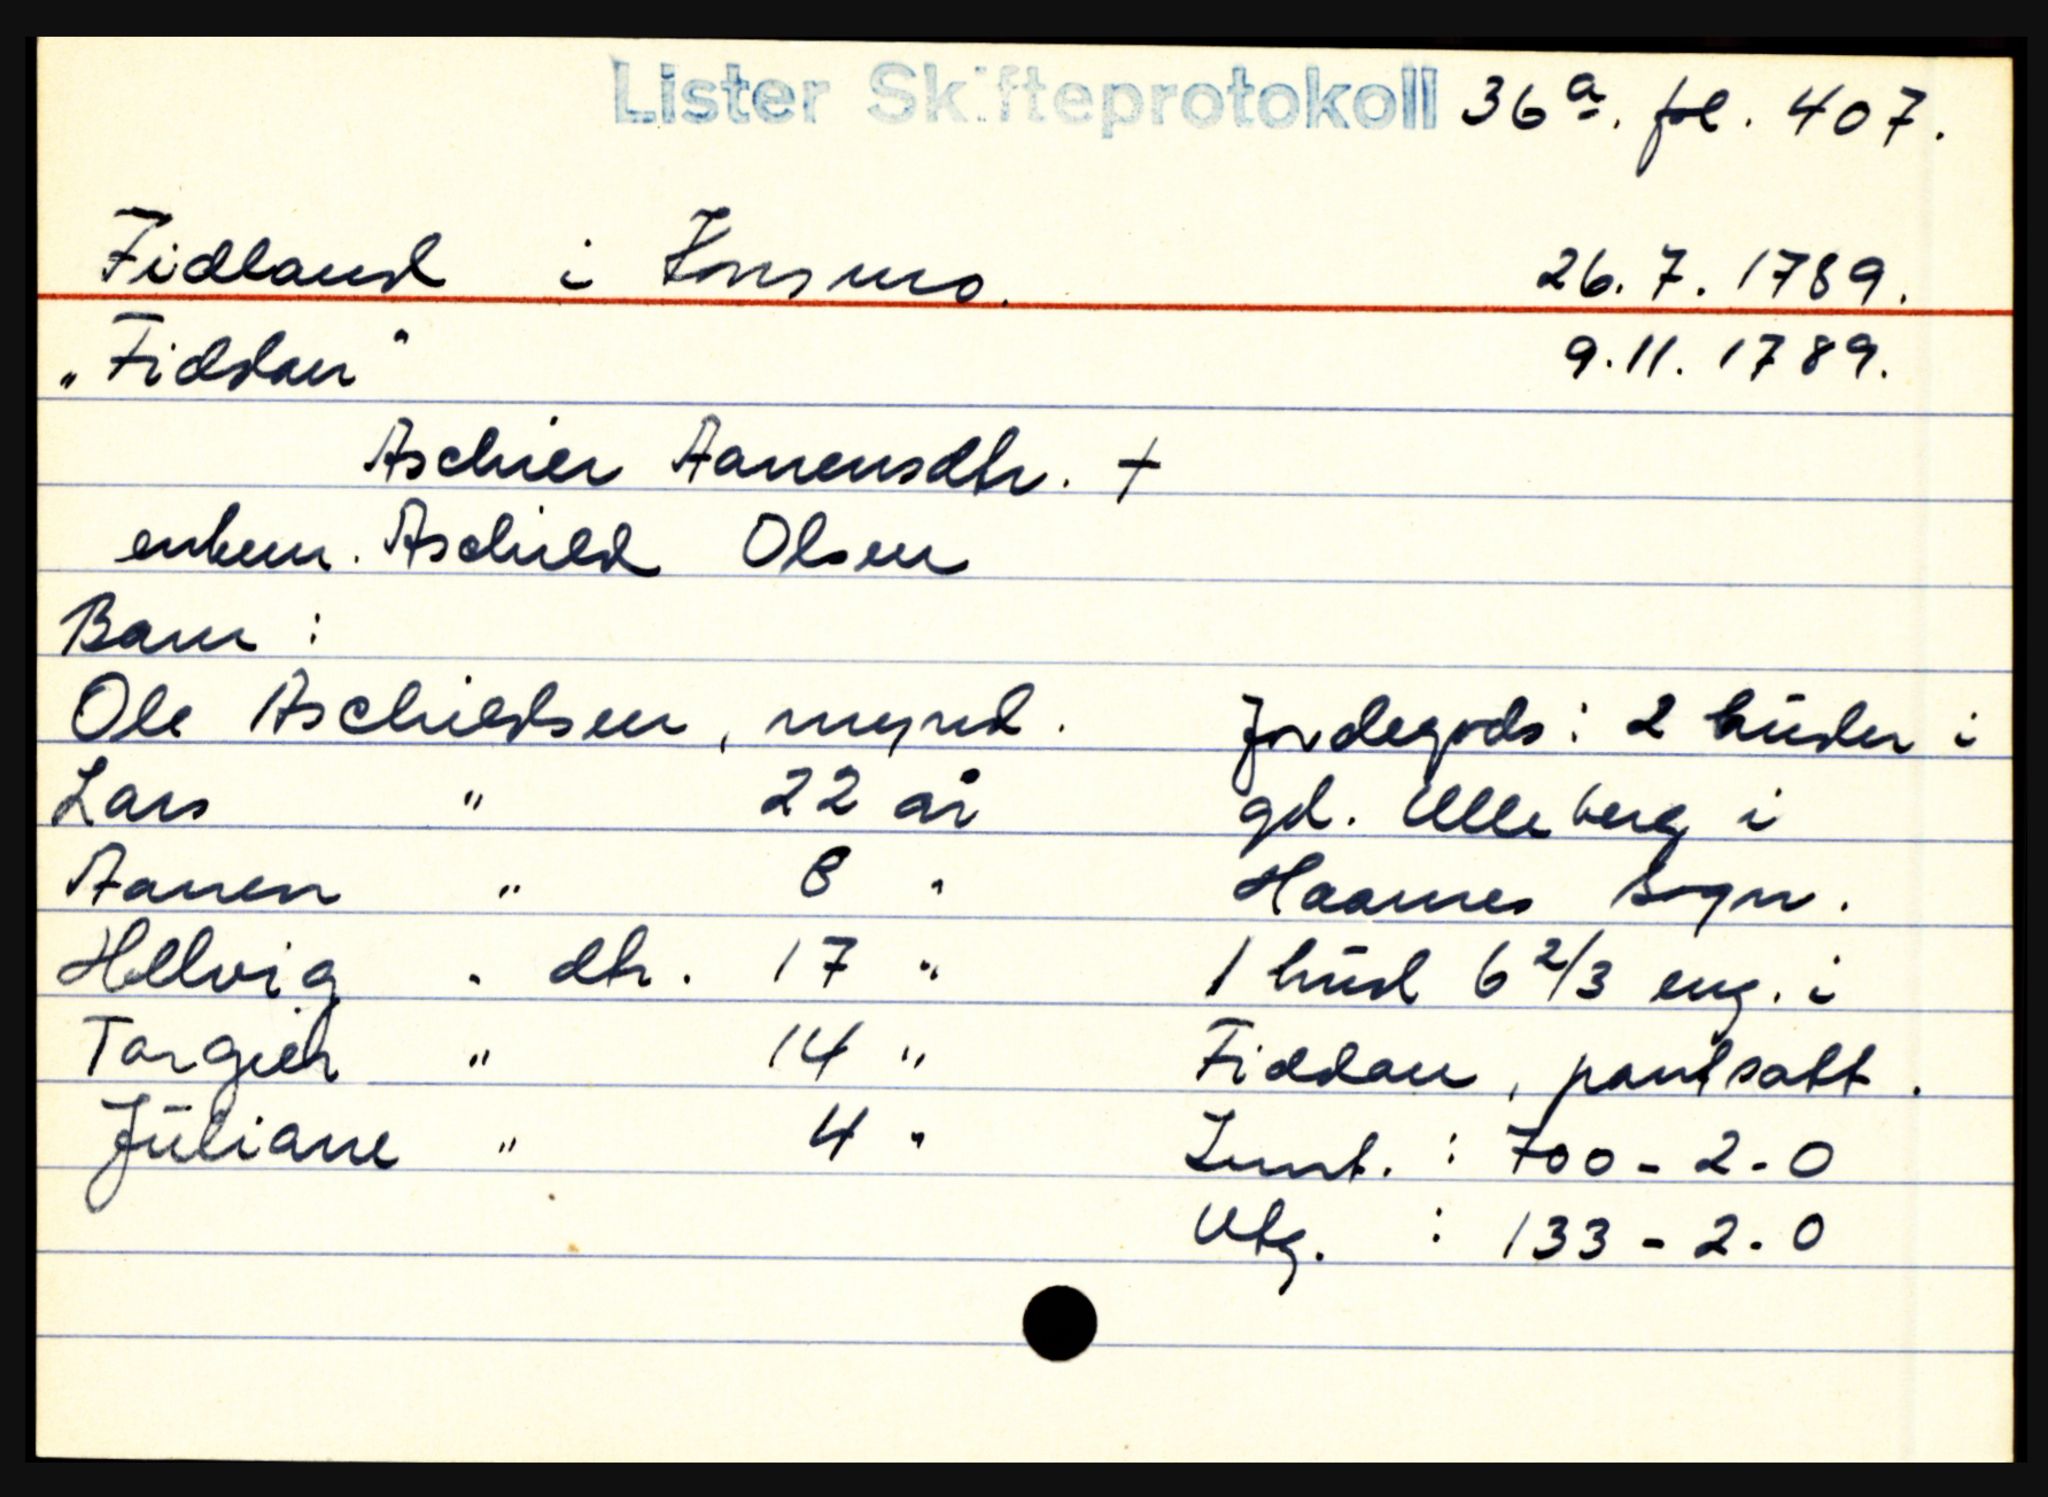 Lister Skifteprotokoll 36a. fol. 407.
Fidland i Konsmo. 26.7.1789.
"Fiddan" 9.11.1789.
Aschier Aanensdtr. +
enkem. Aschild Olsen
Barn:
Ole Aschildsen, mynd.
Lars " 22 år
Aanen " 8 "
Hellvig " dtr. 17 "
Torgier " 14 "
Jūliane " 4 "
Jordegods: 2 hūder i
gd. Ulleberg i
Haannes Sogn.
1 hūd 6 2/3 eng. i
Fiddan, pantsatt.
Innt. : 700-2-0
Utg. : 133-2-0